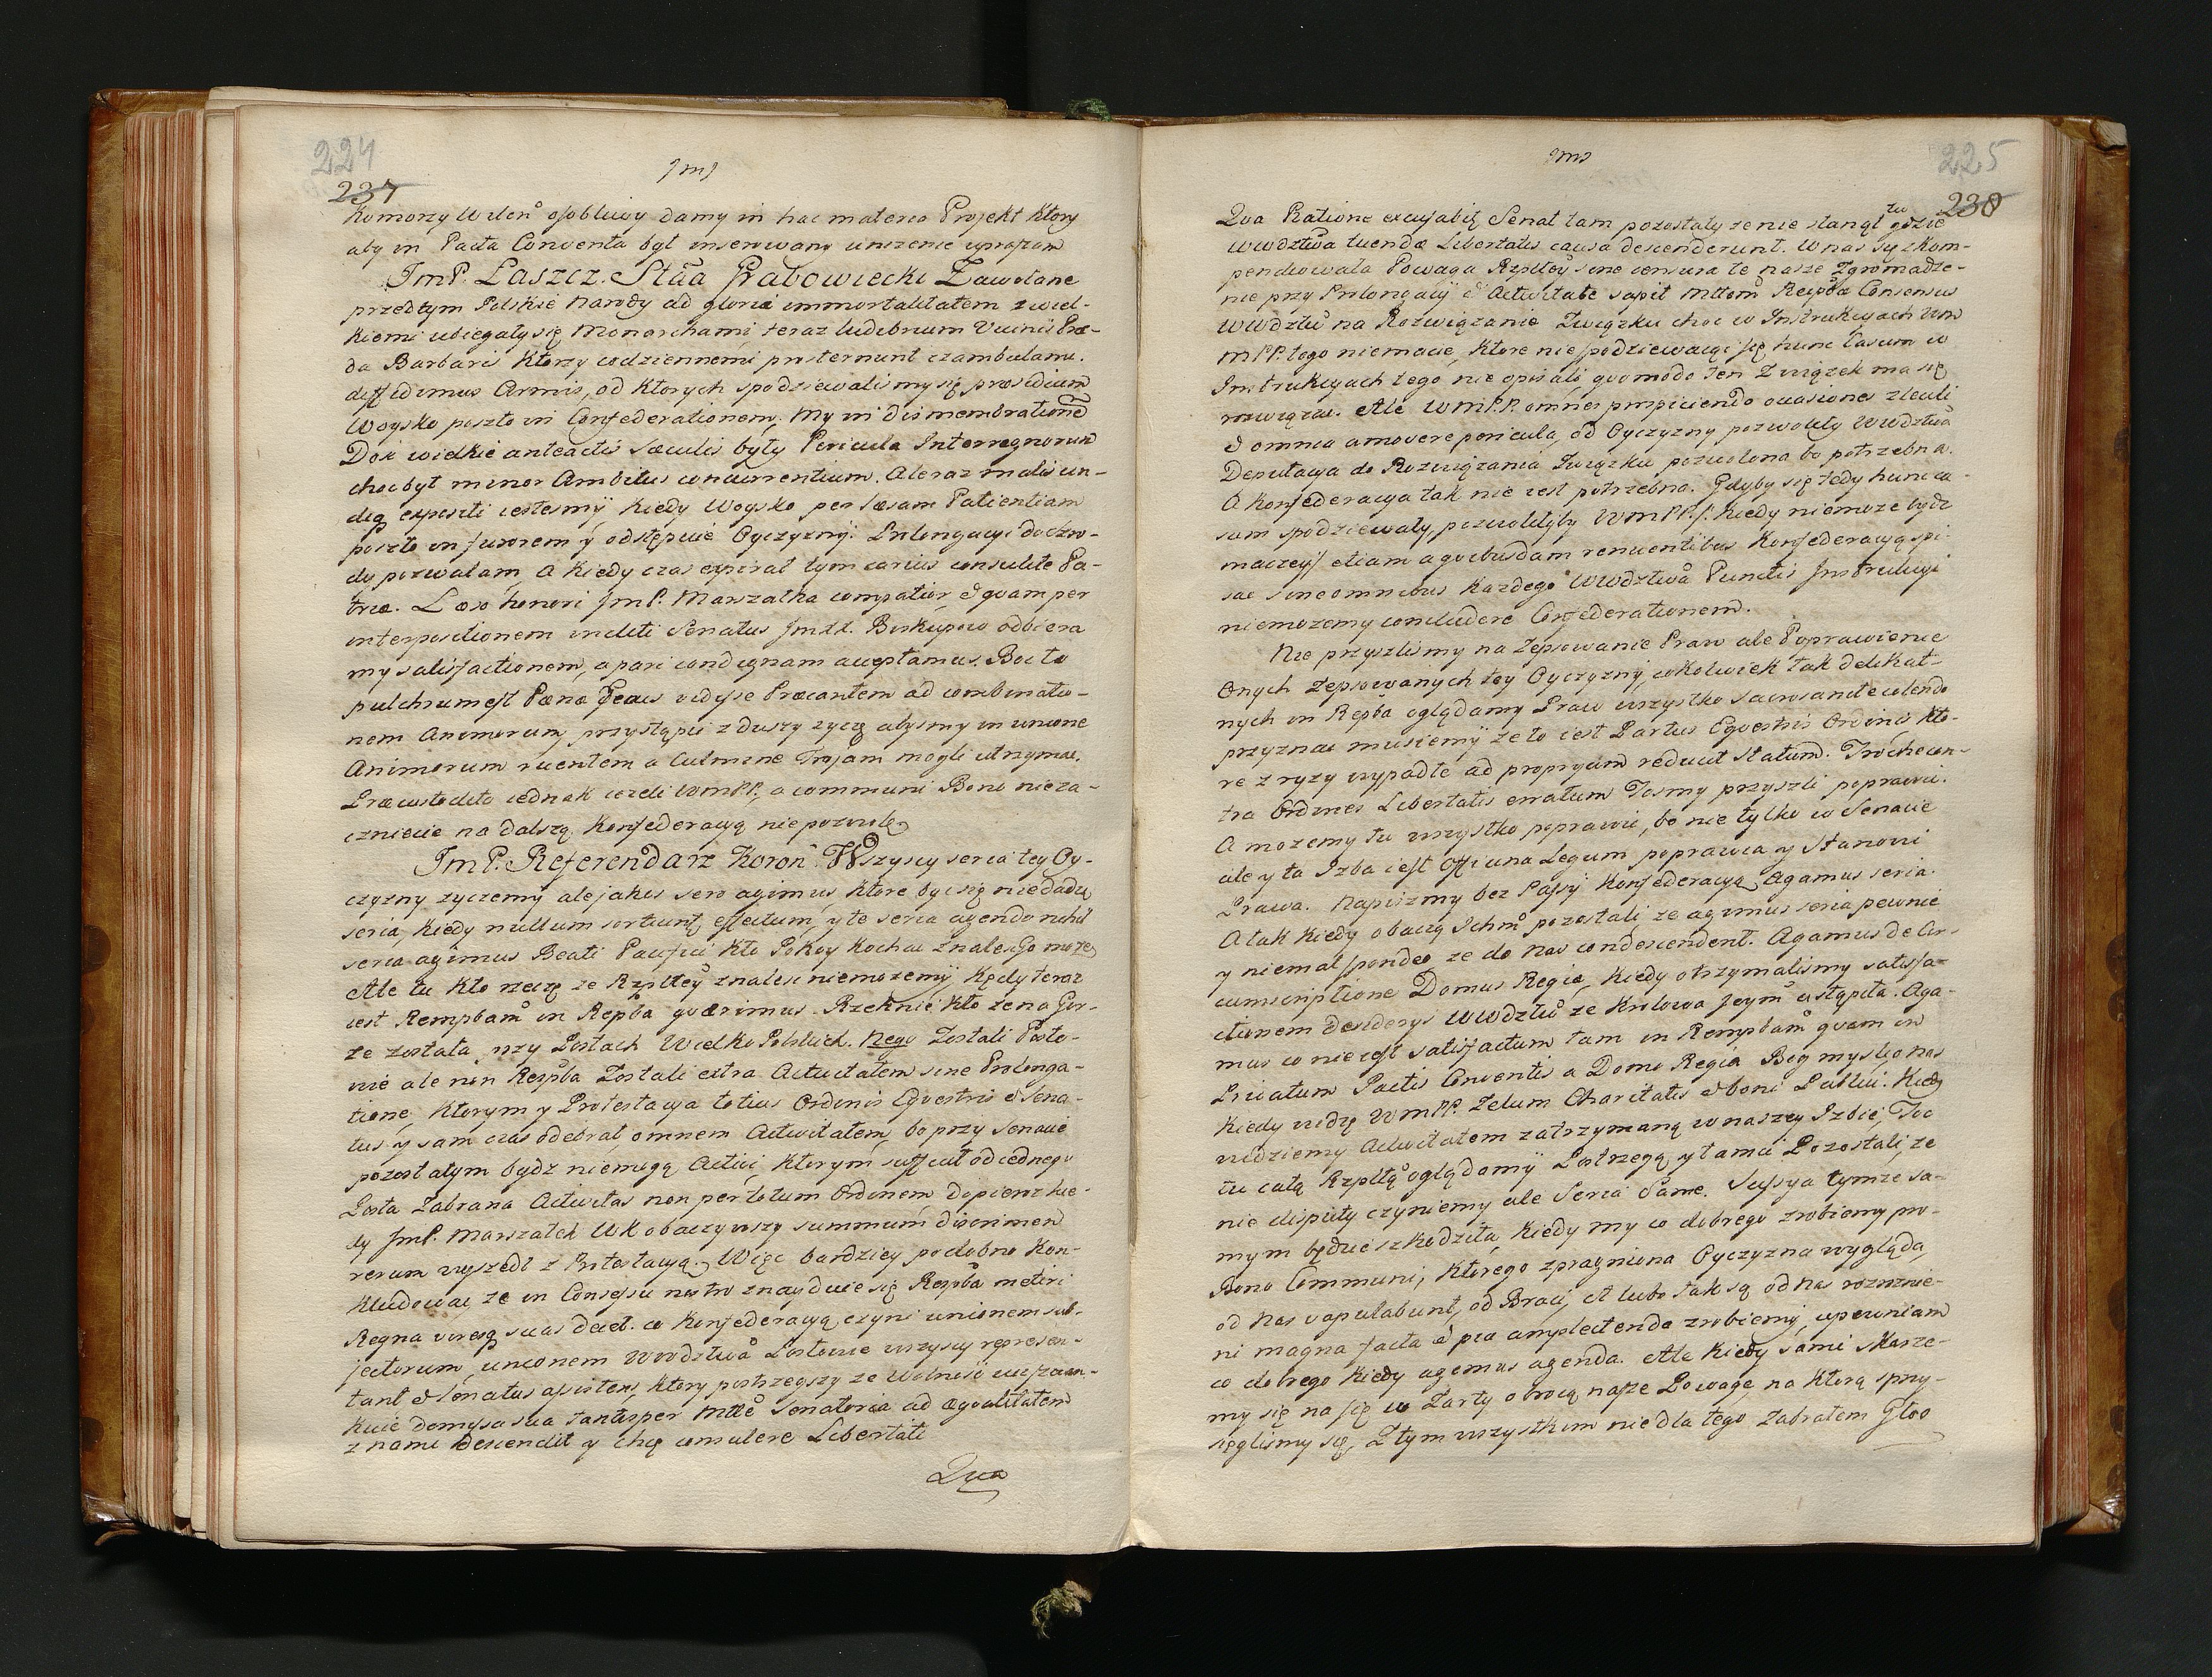 224
237
Komorzy W. deń osobliwy damy in hac materia Projekt Ktory
aby in Pacta Conventa był inserowany uniżenie upraszam
JmP. Laszcz. Stta Grabowiecki Zawołane
przedtym Polskie Narody ad gloriæ immortalitatem z wiel-
kiemi ubiegały się Monarchami, teraz ludibrium Vicinis Præ-
da Barbaris Ktorzy codziennemi prosternunt czambulami.
diffidimus Armis, od Ktorych spodziewalismy się præsidium
Woysko poszło in Confederationem. My in dismembratione
Dość wielkie anteactis sæculis były Pericula Interregnorum
choc był minor Ambitus concurrentium. Ale raz malis un-
diq expositi iestesmy kiedy Woysko per læsam Patientiam
poszło in furorem y odstępuie Oyczyzny. Prolongacyi do czwo-
du pozwalam, a Kiedy czas expirat tym carius consulite Pa-
triæ. Læso honori JmP. Marszałka compatior, & quam per
interpositionem incliti Senatus Jmxx. Biskupow odbiera
my satisfactionem, a pari condignam acceptamus. Bo to
pulchrum est Pænæ Genus vidisse Præcantem ad combinatio-
nem Animorum, przystąpić z duszy zyczę abysmy in unione
Animorum ruentem a Culmine Trojam mogli utrzymac.
Præcustodito iednak iezeli WmPP, a communi Bono nieza-
czniecie na dalszą Konfederacyą niepozwolę
JmP. Referendarz Koroń. Wszyscy seria tey Oy-
czyzny zyczemy ale jakies sero agimus, Ktore być się niedadzą
seria, Kiedy nullum sortiunt effectum, y te seria agendo nihil
seria agimus Beati Pacifici Kto Pokoy Kocha znalesc Go może
Ale tu Kto rzecze ze Rzpltey znalesc niemozemy Kędy teraz
iest Rempbam in Repba quærimus. Rzeknie Kto ze na Gor-
ze została przy Posłach WielkoPolskich. Nego Zostali Posło-
wie ale non Respba Zostali extra Activitatem sine Prolonga-
tione, Ktorym y Protestacya totius Ordinis Equestris & Sena-
tus y sam czas odebrał omnem Activitatem, bo przy Senacie
pozostałym bydz niemogą Activi, Ktorym sufficit od iednego
Posła Zabrana Activitas non per totum Ordinem, dopieroz kie-
dy JmP. Marszałek WK obaczywszy summum discrimen
rerum wyszedł z Protestacyą. Więc bardziey podobno Kon-
kludowac ze in Consessu nostro znayduie się Respba metiri
Regna viresq suas decet. co Konfederacyą czyni unionem sub-
jectorum, unionem Wwdztwa Posłowie wszyscy represen-
tant & Senatus assistens, Ktory postrzegszy ze Wolność
znami descendit y chcę consulere Libertati
Qua
225
238
Qua Ratione excusabit Senat tam pozostały ze nie stanął tu gdzie
Wwdztwa tuendæ Libertatis causa descenderunt. W nas się zkom-
pendiowała Powaga Rzpltey sine censura te nasze Zgromadze-
nie przy Prolongacyi & Activitate sapit Mttem Reipbæ Consensus
Wwdztw na Rozwiązanie Związku choc w Instrukcyach Wm
MPP. tego niemacie, Ktore nie spodziewaiąc się hunc Casum w
Instrukcyach tego nie opisali, quomodo ten Związek ma się
rozwiązac. Ale WMPP. omnes prospiciendo occasiones zlecili
& omnia amovere pericula, od Oyczyzny pozwoliły Wwdztwa
Deputacya do Rozwiązania Związku pozwolona bo potrzebna.
A Konfederacya tak nie iest potrzebna. Gdyby się tedy hunc ca-
sum spodziewały, pozwoliłyby WMPP. /: Kiedy niemoze bydz
inaczey/ etiam a quibusdam renuentibus Konfederacyą spi-
sac sine omnibus Kazdego Wwdztwa Punctis Instrukcyi
niemozemy concludere Confederationem.
Nie przyszlismy na Zepsowanie Praw ale Poprawienie
Onych zepsowanych tey Oyczyzny, cokolwiek tak delikat-
nych in Repba oglądamy Praw wszystko sacrosancte colendo
przyznac musiemy ze to iest Partus Equestris Ordinis Kto-
re z ryzy wypadłe ad proprium reducit Statum. Troche con-
tra Ordines Libertatis erratum Tosmy przyszli poprawic.
A mozemy tu wszystko poprawic, bo nie tylko w Senacie
ale y ta Izba iest Officina Legum poprawia y Stanowi
Prawa. Napiszmy bez Passyi Konfederacyą Agamus seria.
A tak Kiedy obaczą Ichm pozostali, ze agimus seria pewnie
y niemal spondeo ze do nas condescendent. Agamus de Cir-
cumscriptione Domus Regiæ, Kiedy otrzymalismy satisfa-
ctionem desiderys Wwdztw ze Krolowa Jeym ustąpiła. Aga-
mus co nie iest satisfactum tam in Rempbam quam in
Privatum Pactis Conventis a Domo Regia Bog mysli o nas
Kiedy widzę WMPP. Zelum Charitatis & boni Publici. Kiedy
widziemy Activitatem zatrzymaną w naszey Izbie, Toc
tu całą Rzpltą oglądamy Postrzegą y tamci Pozostali, ze
nie disputy czyniemy ale Seria Same. Scissya tymze sa-
mym będzie szkodziła, Kiedy my co dobrego zrobiemy pro
Bono Communi, Ktorego zpragniona Oyczyzna wygląda,
od nas vapulabunt, od Braci, A lubo tak są od nas roznie-
ni magna facta & pia amplectenda zrobiemy, upewniam
co dobrego Kiedy agemus agenda. Ale Kiedy sami Marze-
my się na się w Zarty obrocą nasze Powagę, na Ktorą sprzy-
sięglismy się, Z tym wszystkim nie dla tego Zabrałem Głos